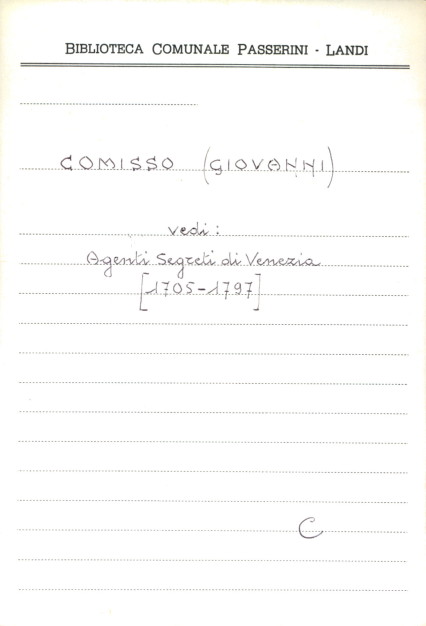 BIBLIOTECA COMUNALE PASSERINI - LANDI
COMISSO (GIOVANNI)
vedi:
Agenti Segreti di Venezia
[1705-1797]
C